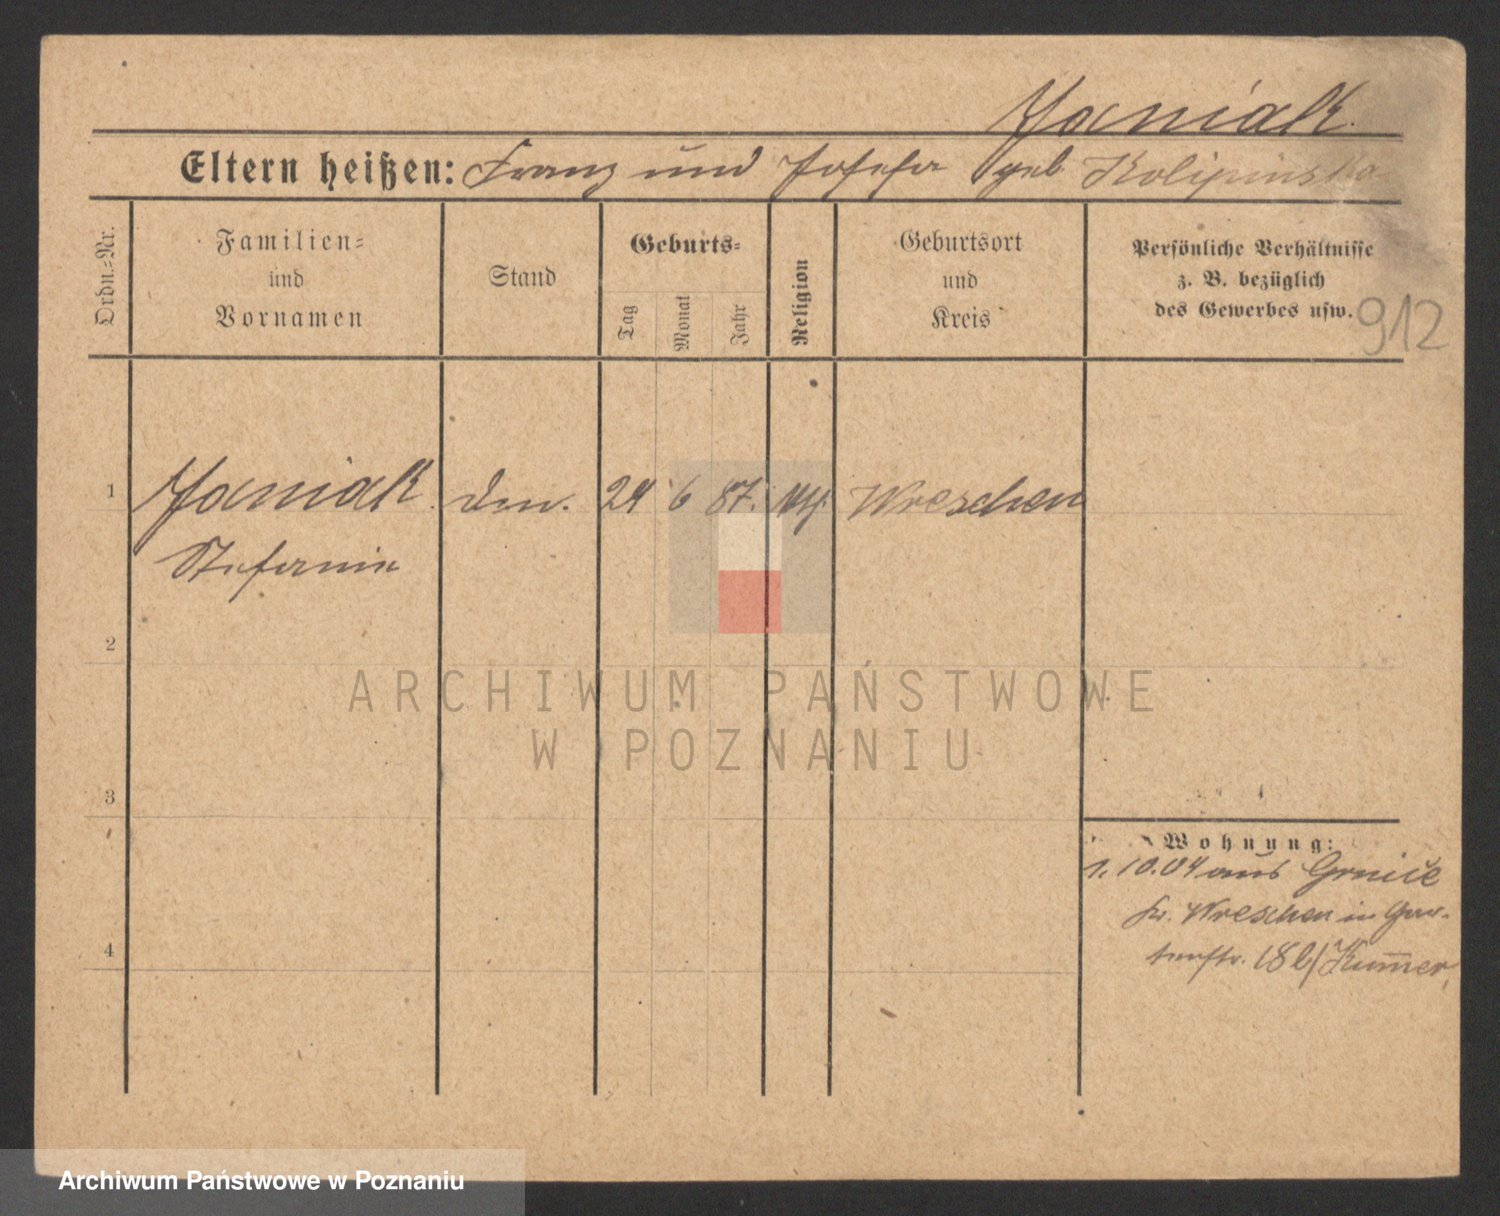 Janiak.
Eltern heißen: Franz und Josefa geb. Kolipinska
Ordn.-Nr.
Familien-
und
Vornamen
Stand
Geburts-
Tag
Monat
Jahr
Religion
Geburtsort
und
Kreis
Persönliche Verhältnisse
z. B. bezüglich
des Gewerbes usw.
912
1
Janiak
24 6 87.
Wreschen
Stefanie
2
ARCHIWUM PAŃSTWOWE
W POZNANIU
3
Wohnung:
1.10.04 aus
Kr. Wreschen in Gar-
tenstr. 18 b/
4
Archiwum Państwowe w Poznaniu